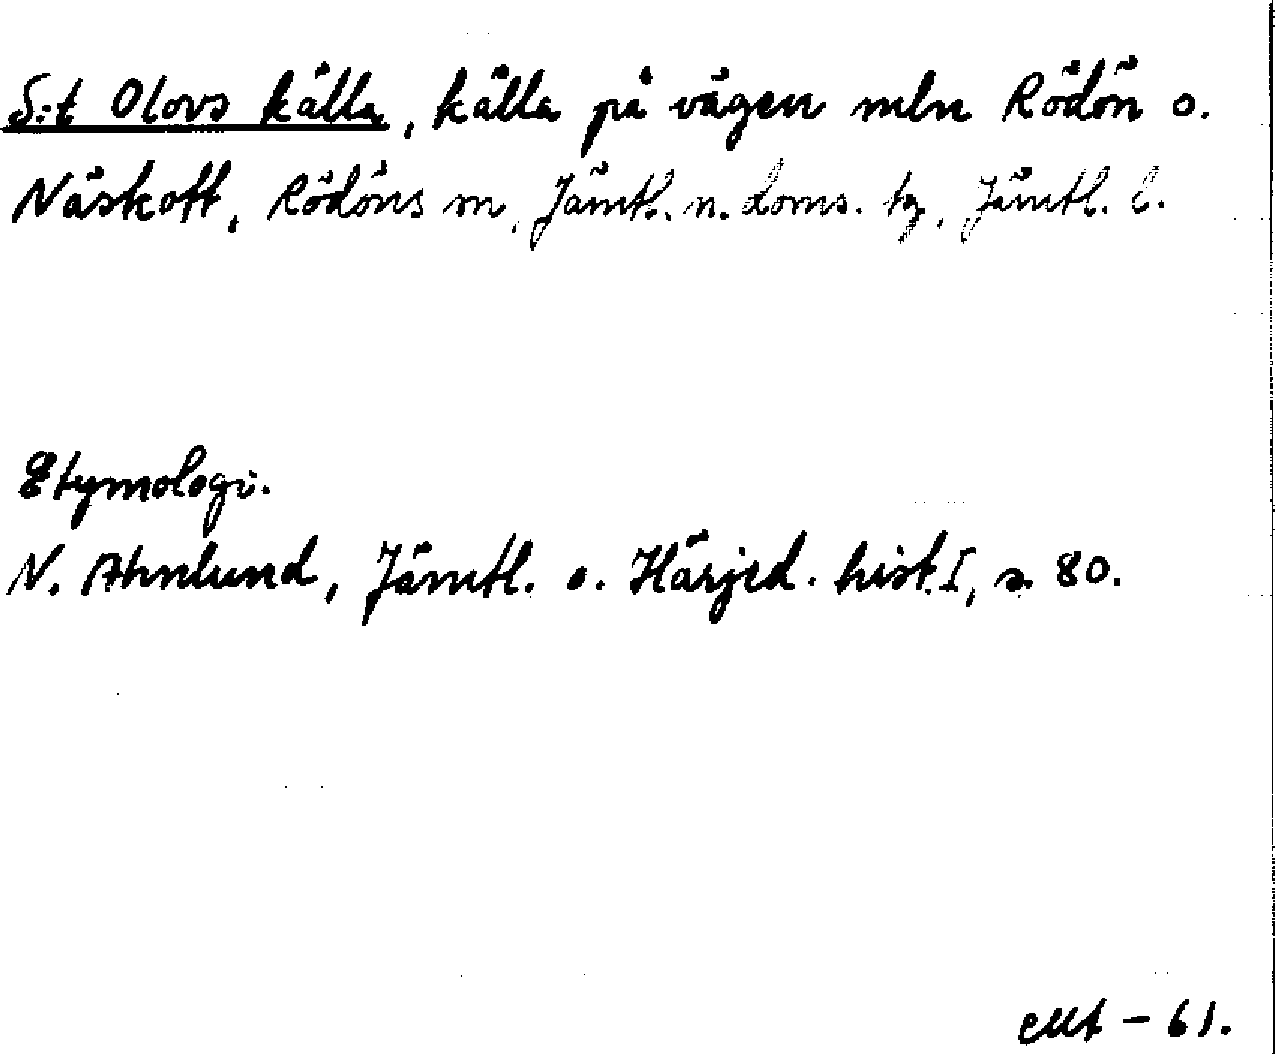 S:t Olovs källa, källa på vägen mln Rödön o.
Näskott, Rödöns sn, Jämtl. n. doms. tg, Jämtl. l.
Etymologi.
N. Ahnlund, Jämtl. o. Härjed. hist. I, s. 80.
EMt - 61.